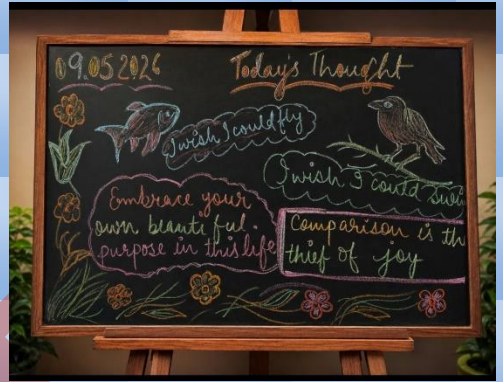 09.05.2026
Today's Thought
I wish I could fly
I wish I could swi
Embrace your
own beautiful
purpose in this life
Comparison is th
thief of joy